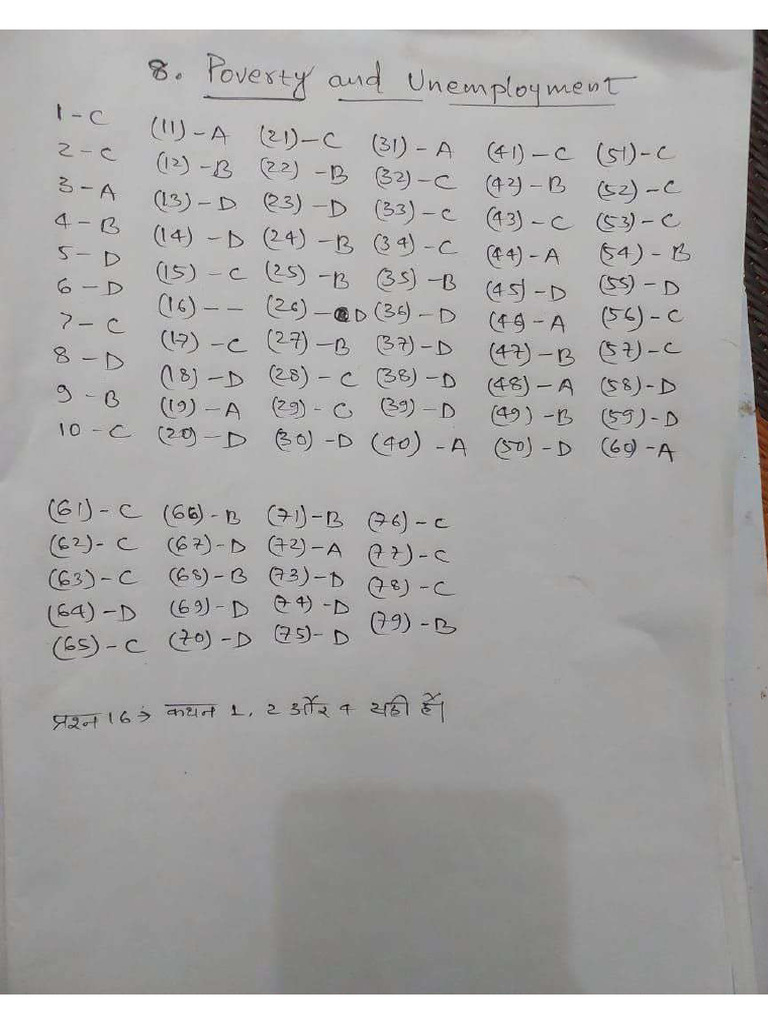 8. Poverty and Unemployment
1-C (11)-A (21)-C (31)-A (41)-C (51)-C
2-C (12)-B (22)-B (32)-C (42)-B (52)-C
3-A (13)-D (23)-D (33)-C (43)-C (53)-C
4-B (14)-D (24)-B (34)-C (44)-A (54)-B
5-D (15)-C (25)-B (35)-B (45)-D (55)-D
6-D (16)-- (26)-D (36)-D (46)-A (56)-C
7-C (17)-C (27)-B (37)-D (47)-B (57)-C
8-D (18)-D (28)-C (38)-D (48)-A (58)-D
9-B (19)-A (29)-C (39)-D (49)-B (59)-D
10-C (20)-D (30)-D (40)-A (50)-D (60)-A
(61)-C (66)-B (71)-B (76)-C
(62)-C (67)-D (72)-A (77)-C
(63)-C (68)-B (73)-D (78)-C
(64)-D (69)-D (74)-D (79)-B
(65)-C (70)-D (75)-D
प्रश्न 16 → कथन 1, 2 और 4 सही हैं।